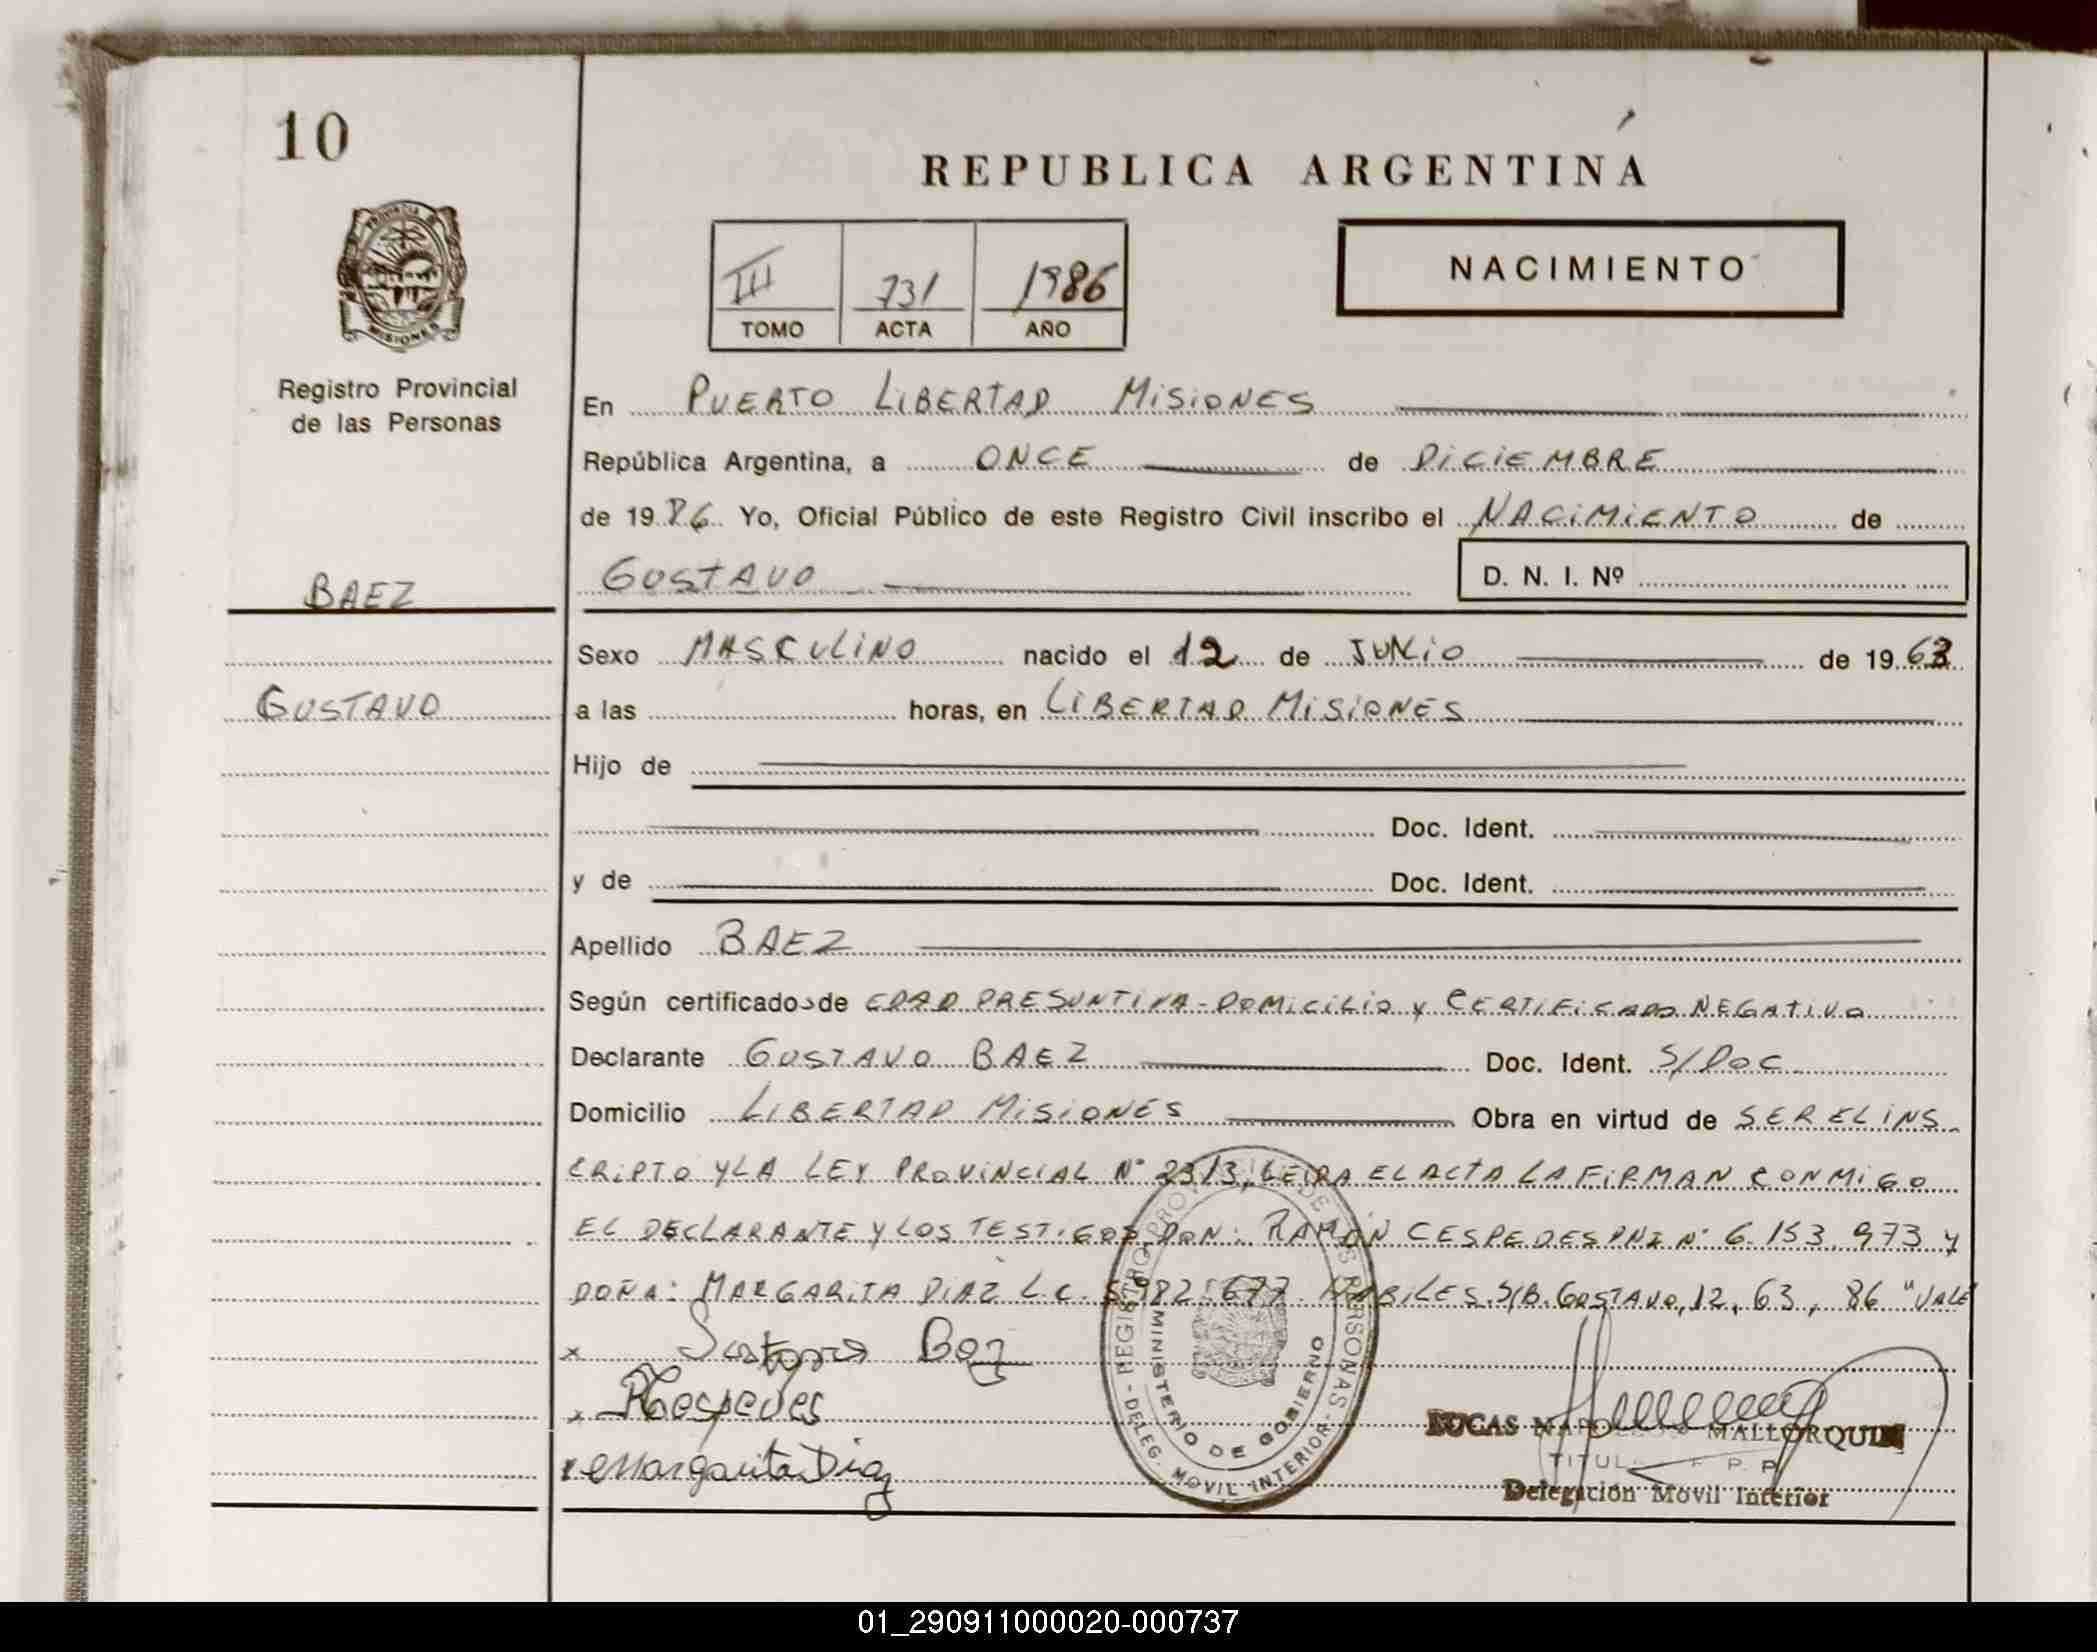 10
REPUBLICA ARGENTINA
PROVINCIA DE
MISIONES
III 731 1986
TOMO ACTA AÑO
NACIMIENTO
Registro Provincial
de las Personas
En PUERTO LIBERTAD MISIONES
República Argentina, a ONCE de DICIEMBRE
de 19 86 Yo, Oficial Público de este Registro Civil inscribo el NACIMIENTO de
BAEZ
GUSTAVO D. N. I. Nº
Sexo MASCULINO nacido el 12 de JUNIO de 19 63
GUSTAVO
a las horas, en LIBERTAD MISIONES
Hijo de
Doc. Ident.
y de Doc. Ident.
Apellido BAEZ
Según certificado de EDAD PRESUNTIVA - DOMICILIO Y CERTIFICADO NEGATIVO
Declarante GUSTAVO BAEZ Doc. Ident. S/DOC
Domicilio LIBERTAD MISIONES Obra en virtud de SER EL INS
CRIPTO Y LA LEY PROVINCIAL Nº 2313, LEIDA EL ACTA LA FIRMAN CONMIGO
EL DECLARANTE Y LOS TESTIGOS, DON: RAMÓN CESPEDES DNI Nº 6.153.973 Y
DOÑA: MARGARITA DIAZ L.C. 5.982.677 HABILES. S/B. GUSTAVO, 12, 63, 86 "VALE
x Baez
x RCespedes
x Margarita Diaz
REGISTRO PROVINCIAL DE LAS PERSONAS - DELEG. MOVIL INTERIOR -
MINISTERIO DE GOBIERNO
LUCAS MALLORQUIN
Delegación Movil Interior
01_290911000020-000737